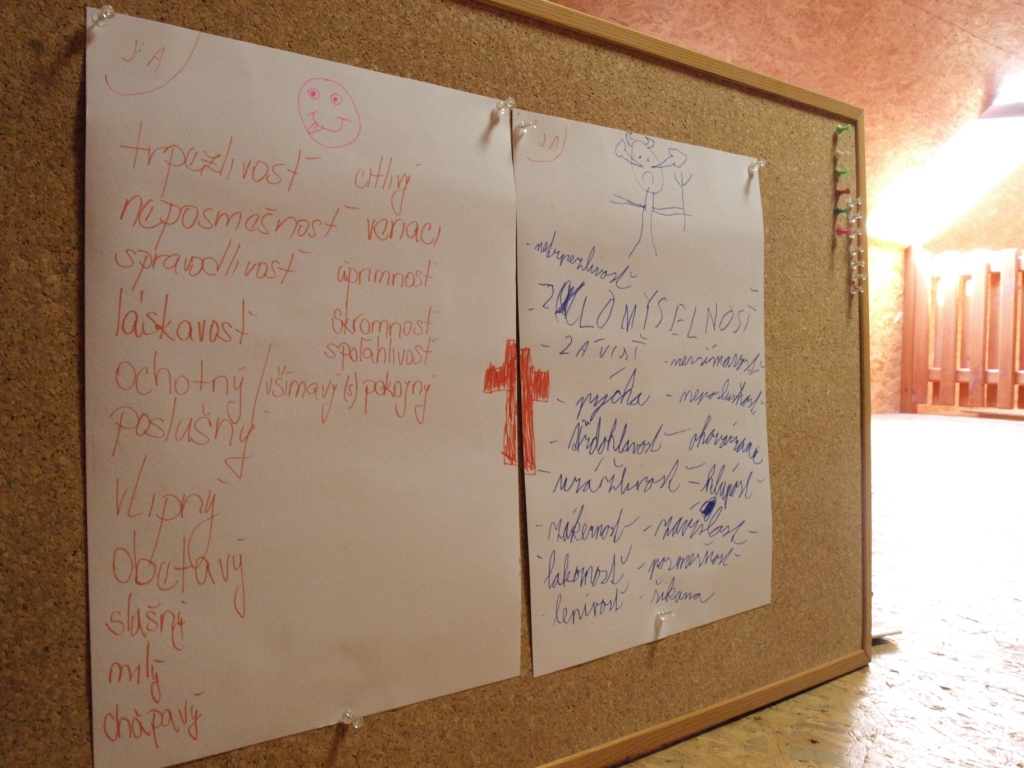 JA
trpezlivosť citlivý
neposmešnosť veriaci
spravodlivosť úprimnosť
láskavosť skromnosť
spoľahlivosť
ochotný / všímavý (s) pokojný
poslušný
vtipný
obetavý
slušný
milý
chápavý
JA
- netrpezlivosť
- ZLOMYSEĽNOSŤ
- ZÁVISŤ - nevšímavosť
- pýcha - neposlušnosť
- tvrdohlavosť - ohováranie
- urážlivosť - hlúposť
- zákernosť - závislosť
- lakomosť - posmešnosť
- lenivosť - šikana